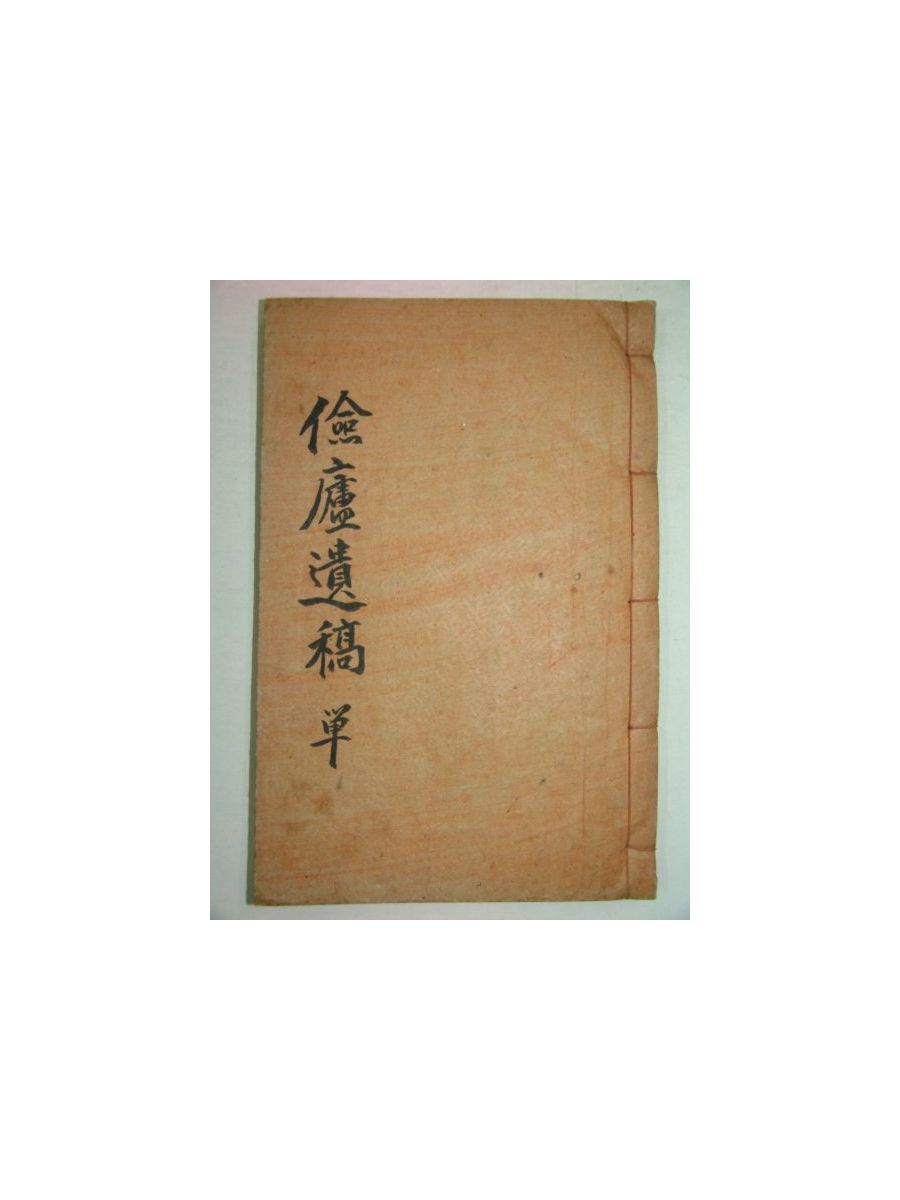 儉廬遺稿 単